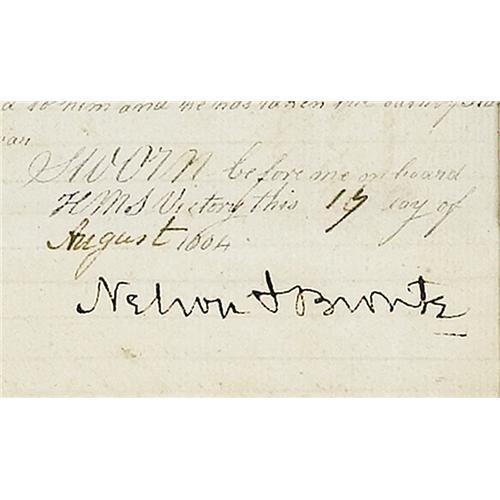 to him and he has taken the
SWORN before me on board
HMS Victory this 17 day of
August 1804.
Nelson & Bronte